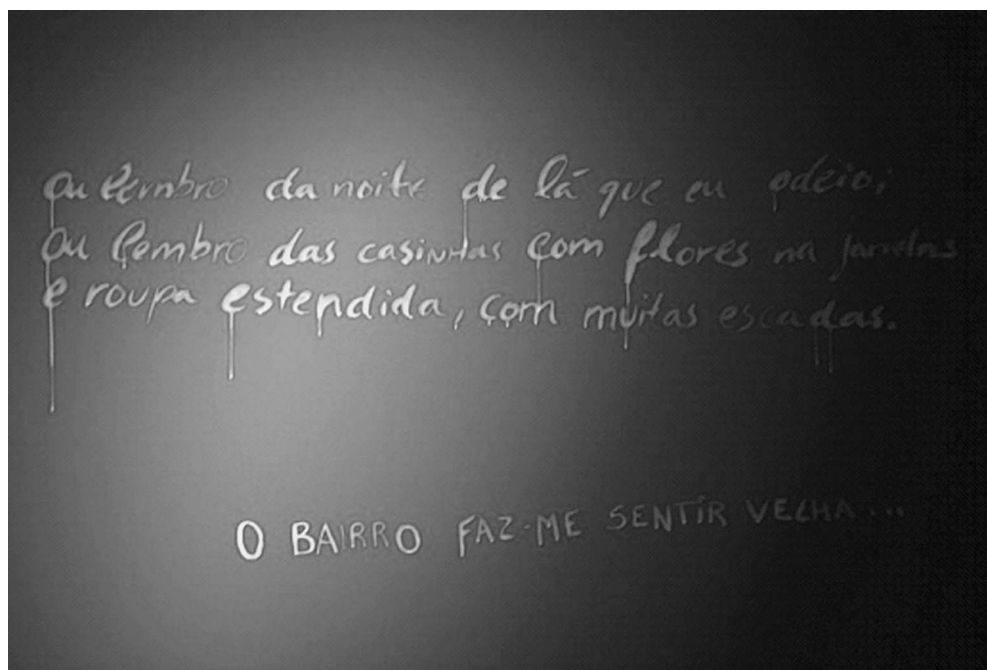 ou lembro da noite de lá que eu odeio;
ou lembro das casinhas com flores na janelas
e roupa estendida, com muitas escadas.
O BAIRRO FAZ-ME SENTIR VELHA...